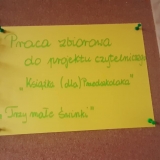 Praca zbiorowa
do projektu czytelniczego
"Książka (dla) Przedszkolaka"
"Trzy małe świnki"